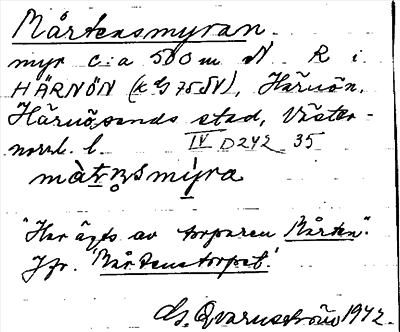 Mårtensmyran.
myr c:a 500 m N R i
HÄRNÖN (kG 75 SV), Härnön,
Härnösands stad, Väster-
norrl. l. IV D242 35
màtn̥smýra
"Har ägts av torparen Mårten".
Jfr. 'Mårtenstorpet'.
G. Qvarnström 1942.